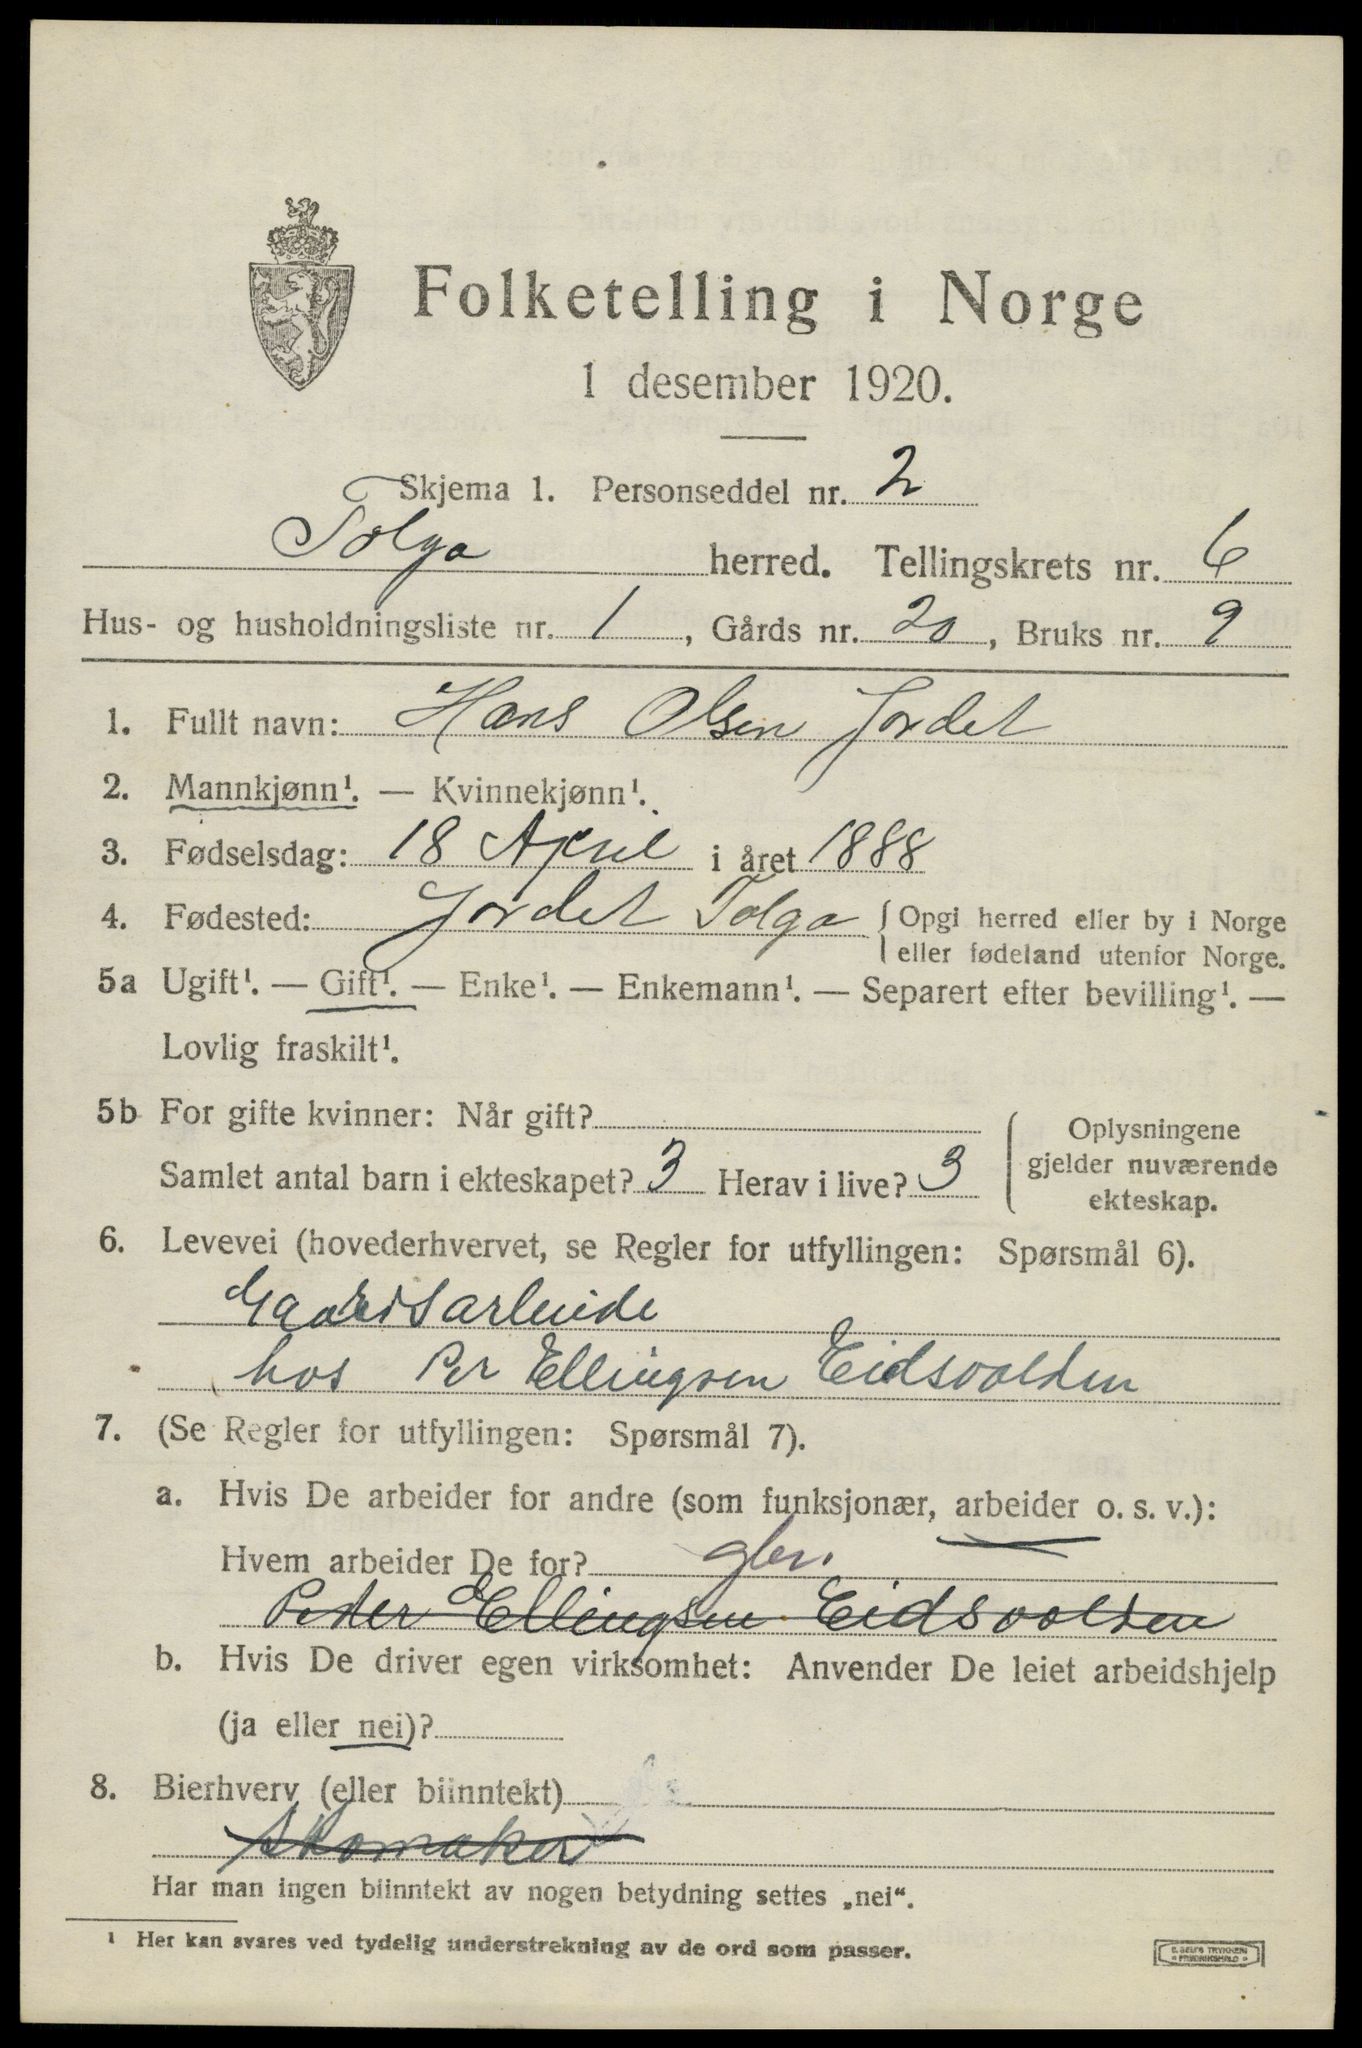 Folketelling i Norge
1 desember 1920.
Skjema 1. Personseddel nr. 2
Tolga herred. Tellingskrets nr. 6
Hus- og husholdningsliste nr. 1, Gårds nr. 20, Bruks nr. 9
1. Fullt navn: Hans Olsen Jordet
2. Mannkjønn¹. — Kvinnekjønn¹.
3. Fødselsdag: 18 April i året 1888
4. Fødested: Jordet Tolga { Opgi herred eller by i Norge
eller fødeland utenfor Norge.
5a Ugift¹. — Gift¹. — Enke¹. — Enkemann¹. — Separert efter bevilling¹. —
Lovlig fraskilt¹.
5b For gifte kvinner: Når gift?
Samlet antal barn i ekteskapet? 3 Herav i live? 3
Oplysningene
gjelder nuværende
ekteskap.
6. Levevei (hovederhvervet, se Regler for utfyllingen: Spørsmål 6).
Gaardsarbeide
hos Per Ellingsen Eidsvolden
7. (Se Regler for utfyllingen: Spørsmål 7).
a. Hvis De arbeider for andre (som funksjonær, arbeider o. s. v.):
Hvem arbeider De for? gbr.
Peder Ellingsen Eidsvolden
b. Hvis De driver egen virksomhet: Anvender De leiet arbeidshjelp
(ja eller nei)?
8. Bierhverv (eller biinntekt)
Skomaker
Har man ingen biinntekt av nogen betydning settes „nei“.
¹ Her kan svares ved tydelig understrekning av de ord som passer.
E. SEM'S TRYKKERI
FREDRIKSHALD